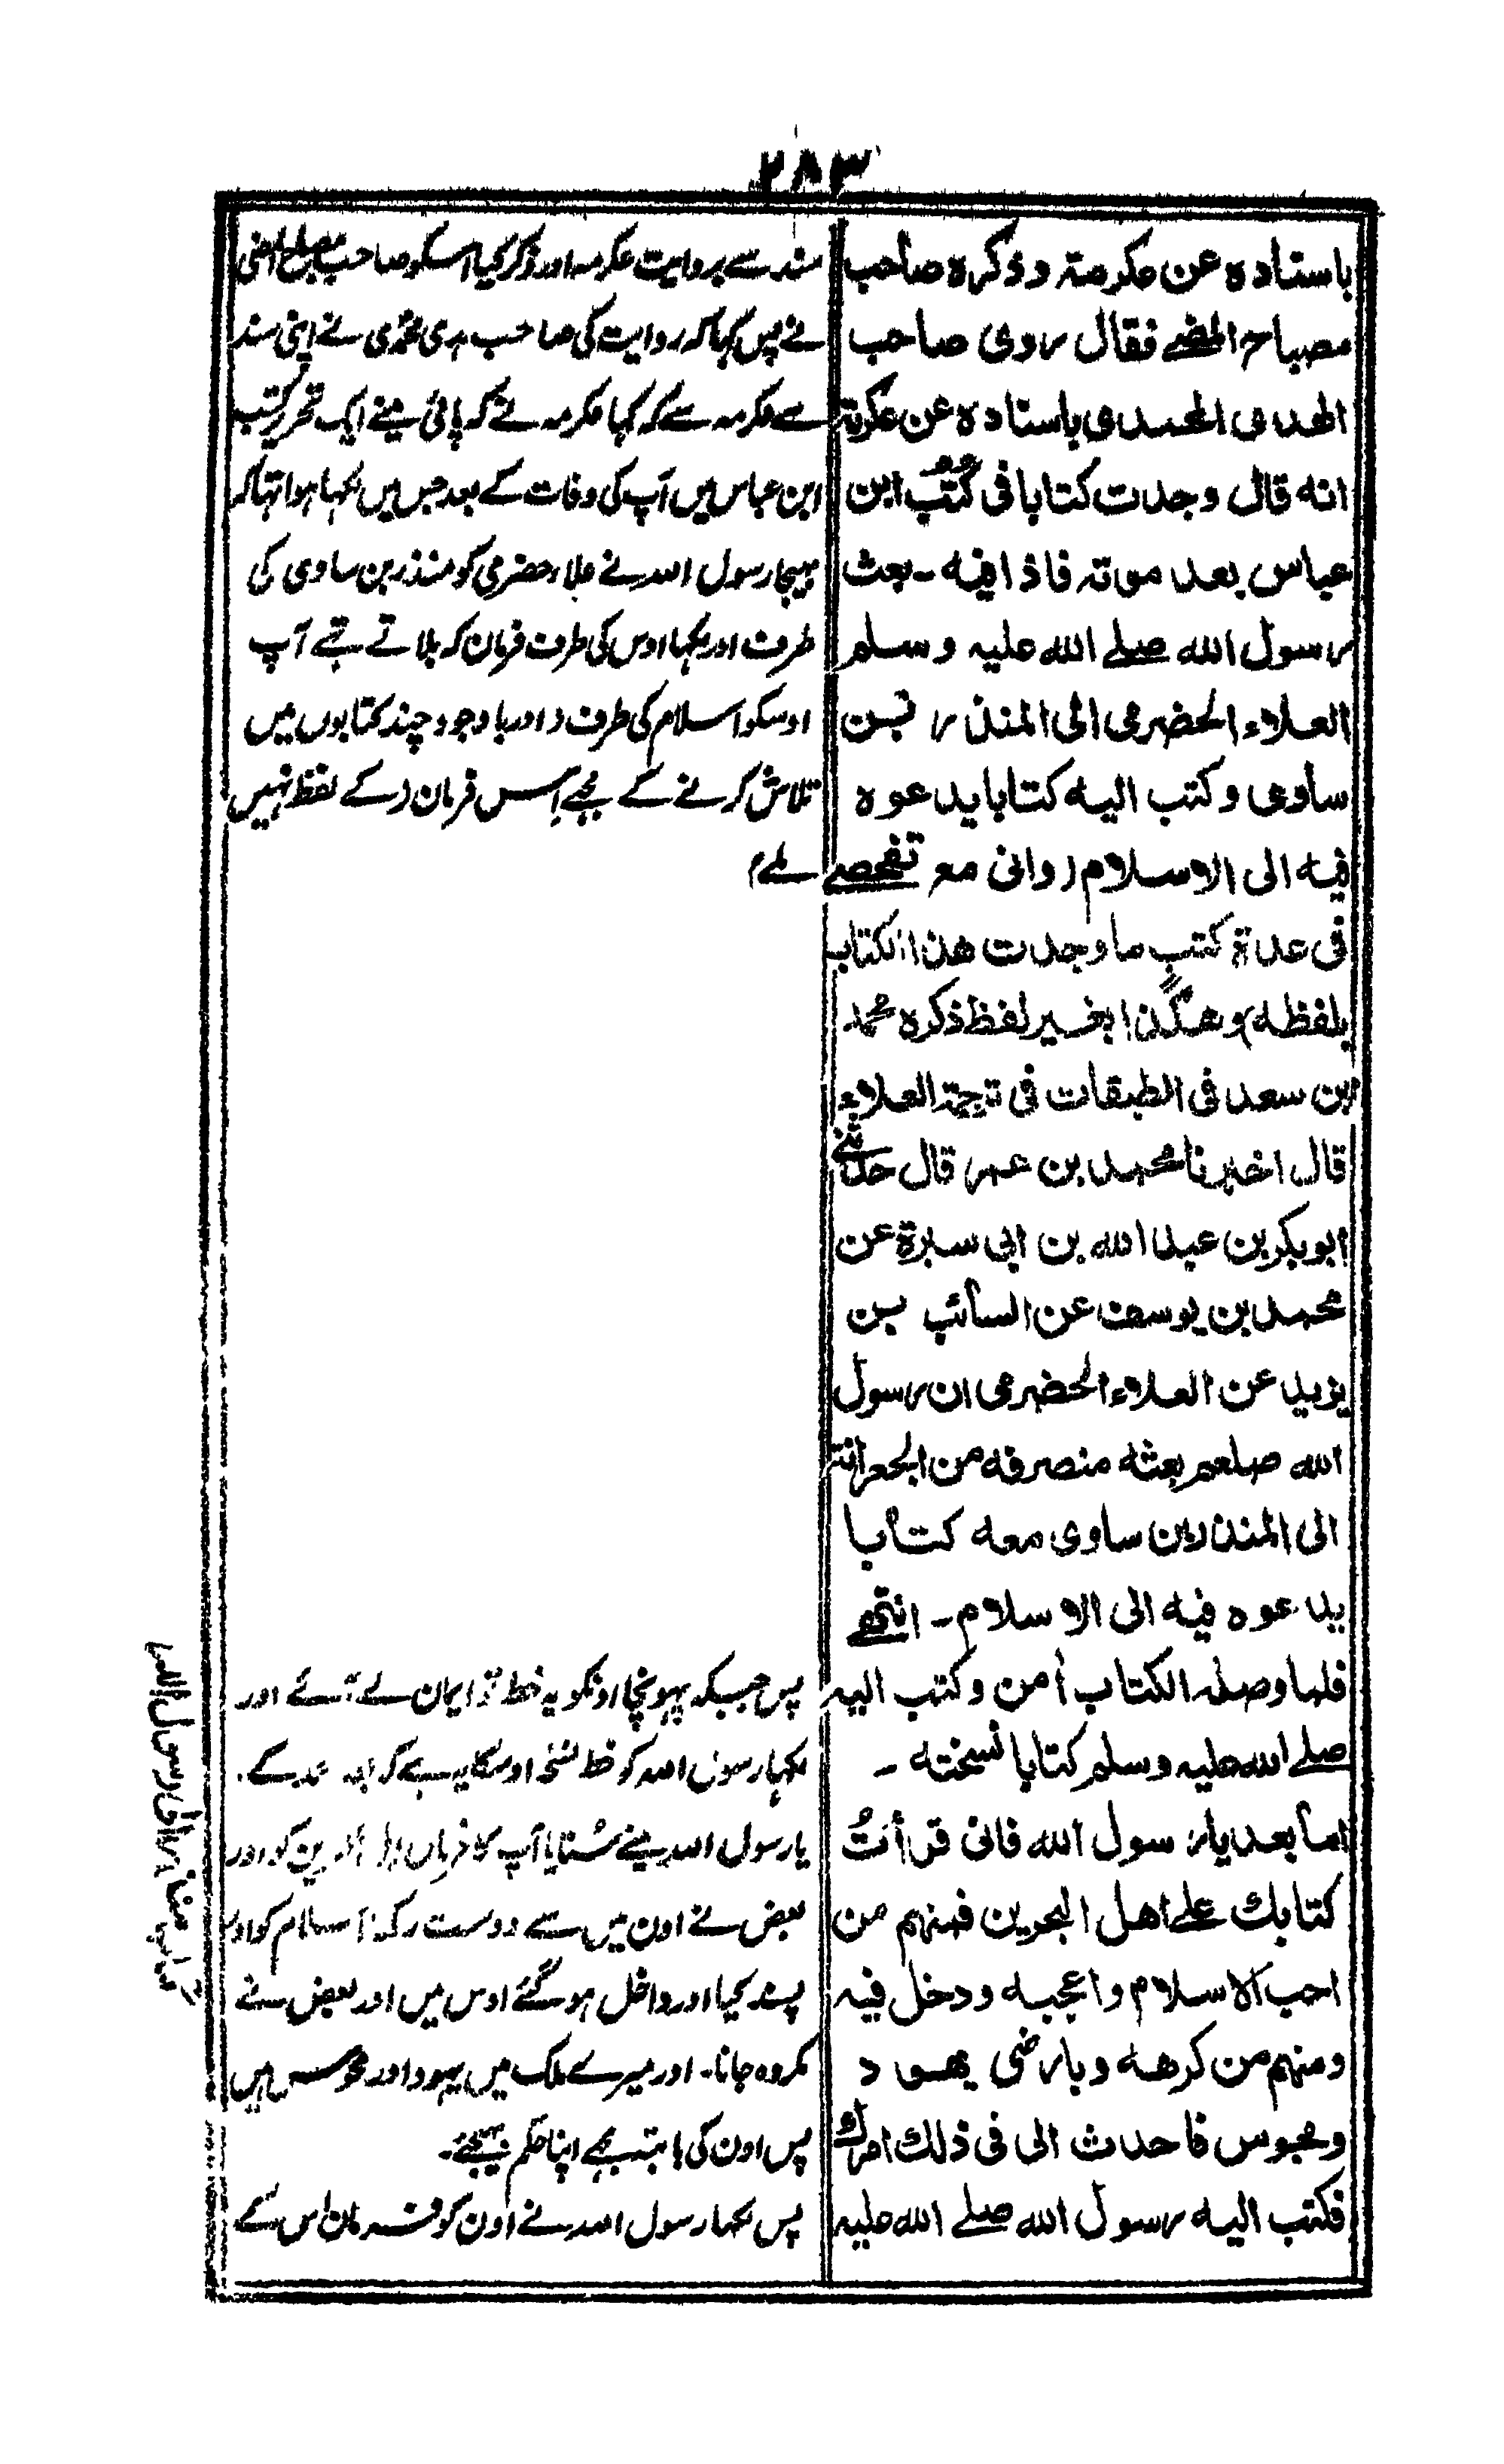 ٢٨٣
باسناده عن عكرمته وذكره صاحب
مصباح المضے فقال روی صاحب
الهدی المحمدی باسناده عن عكرمة
انه قال وجدت كتابا فی كُتُب ابن
عباس بعد موته فاذا فیه - بعث
رسول الله صلے الله علیه وسلم
العلاء الحضرمی الی المنذر بن
ساوی وكتب الیه كتابا یدعوه
فیه الی الاسلام (وانی مع تفحصے
فی عدة كتبٍ ما وجدت هذا الكتاب
بلفظه) وهكذا بغیر لفظ ذكره محمد
ابن سعد فی الطبقات فی ترجمة العلاء
قال اخبرنا محمد بن عمر قال حدثنے
ابوبكر بن عبد الله بن ابی سبرة عن
محمد بن یوسف عن السائب بن
یزید عن العلاء الحضرمی ان رسول
الله صلعم بعثه منصرفه من الجعرانة
الی المنذر بن ساوی معه كتابا
یدعوه فیه الی الاسلام - انتهے
فلما وصله الكتاب أمن وكتب الیه
صلے الله علیه وسلم كتابا نسخته -
اما بعد یا رسول الله فانی قرأتُ
كتابك علے اهل البحرین فمنهم من
احب الاسلام واعجبه ودخل فیه
ومنهم من كرهه وبارضی یهود
ومجوس فاحدث الی فی ذلك امرك
فكتب الیه رسول الله صلے الله علیه
سند سے بروایت عکرمہ اور ذکر کیا اسکو صاحب مصباح المضی
نے پس کہا کہ روایت کی صاحب ہدی محمدی نے اپنی سند
سے عکرمہ سے کہ کہا عکرمہ نے کہ پائی مینے ایک تحریر کتب
ابن عباس میں آپ کی وفات کے بعد جس میں لکہا ہوا تہا کہ
بہیجا رسول اللہ نے علاء حضرمی کو منذر بن ساوی کی
طرف اور لکہا اوس کی طرف فرمان کہ بلاتے تہے آپ
اوسکو اسلام کی طرف (اور باوجود چند کتابوں میں
تلاش کرنے کے مجہے اس فرمان کے لفظ نہیں
ملے)
پس جبکہ پہونچا اونکو یہ خط تو ایمان لے آئے اور
لکہا رسول اللہ کو خط نسخہ اوسکا یہ ہے کہ بعد حمد کے
یا رسول اللہ مینے سنایا آپ کا فرمان اہل بحرین کو اور
بعض نے اون میں سے دوست رکہا اسلام کو اور
پسند کیا اور داخل ہو گئے اوس میں اور بعض نے
مکروہ جانا۔ اور میرے ملک میں یہود اور مجوس ہیں
پس اون کی بابتہ مجہے اپنا حکم بہیجئے۔
پس لکہا رسول اللہ نے اون کو فرمان اس کے
كتاب منذر الی رسول الله